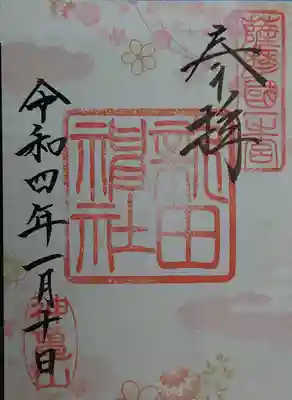 薩摩國一宮
奉拝
新田
神社
令和四年一月十日
神亀山